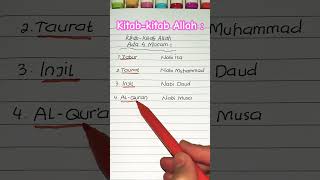 Kitab-kitab Allah :
2. Taurat Muhammad
3. Injil Daud
4. AL-Qur'a Musa
Kitab-Kitab Allah
Ada 4 Macam :
1. Zabur Nabi Isa
2. Taurat Nabi Muhammad
3. Injil Nabi Daud
4. AL-Quran Nabi Musa